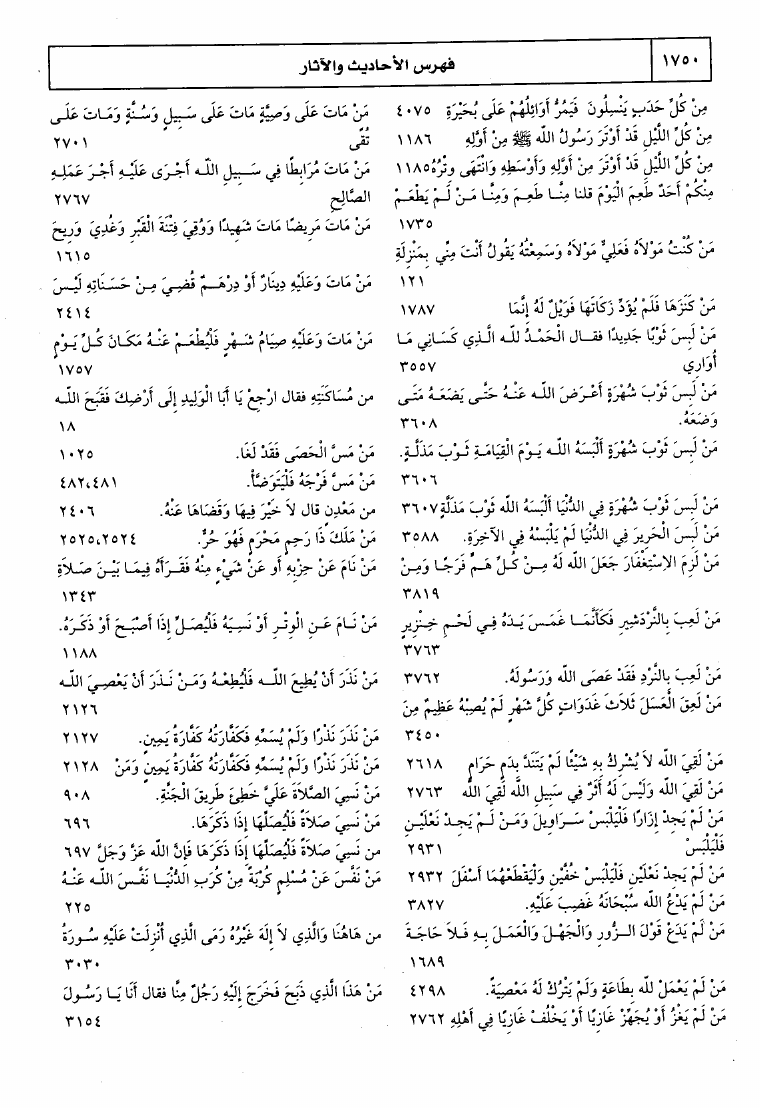 ١٧٥٠
فهرس الأحاديث والآثار
مِنْ كُلِّ حَدَبٍ يَنْسِلُونَ فَيَمُرُّ أَوَائِلُهُمْ عَلَى بُحَيْرَةِ ٤٠٧٥
مِنْ كُلِّ اللَّيْلِ قَدْ أَوْتَرَ رَسُولُ الله ﷺ مِنْ أَوَّلِهِ ١١٨٦
مِنْ كُلِّ اللَّيْلِ قَدْ أَوْتَرَ مِنْ أَوَّلِهِ وَأَوْسَطِهِ وَانْتَهَى وِتْرُهُ ١١٨٥
مِنْكُمْ أَحَدٌ طَعِمَ الْيَوْمَ قلنا مِنَّا طَعِمَ وَمِنَّا مَنْ لَمْ يَطْعَمْ
١٧٣٥
مَنْ كُنْتُ مَوْلاَهُ فَعَلِيٌّ مَوْلاَهُ وَسَمِعْتُهُ يَقُولُ أَنْتَ مِنِّي بِمَنْزِلَةِ
١٢١
مَنْ كَنَزَهَا فَلَمْ يُؤَدِّ زَكَاتَهَا فَوَيْلٌ لَهُ إِنَّمَا ١٧٨٧
مَنْ لَبِسَ ثَوْبًا جَدِيدًا فقال الْحَمْدُ لله الَّذِي كَسَانِي مَا
أُوَارِي ٣٥٥٧
مَنْ لَبِسَ ثَوْبَ شُهْرَةٍ أَعْرَضَ اللـه عَنْهُ حَتَّى يَضَعَهُ مَتَى
وَضَعَهُ. ٣٦٠٨
مَنْ لَبِسَ ثَوْبَ شُهْرَةٍ أَلْبَسَهُ اللـه يَوْمَ الْقِيَامَةِ ثَوْبَ مَذَلَّةٍ.
٣٦٠٦
مَنْ لَبِسَ ثَوْبَ شُهْرَةٍ فِي الدُّنْيَا أَلْبَسَهُ الله ثَوْبَ مَذَلَّةٍ ٣٦٠٧
مَنْ لَبِسَ الْحَرِيرَ فِي الدُّنْيَا لَمْ يَلْبَسْهُ فِي الآخِرَةِ. ٣٥٨٨
مَنْ لَزِمَ الاِسْتِغْفَارَ جَعَلَ الله لَهُ مِنْ كُلِّ هَمٍّ فَرَجًا وَمِنْ
٣٨١٩
مَنْ لَعِبَ بِالنَّرْدَشِيرِ فَكَأَنَّمَا غَمَسَ يَدَهُ فِي لَحْمِ خِنْزِيرٍ
٣٧٦٣
مَنْ لَعِبَ بِالنَّرْدِ فَقَدْ عَصَى الله وَرَسُولَهُ. ٣٧٦٢
مَنْ لَعِقَ الْعَسَلَ ثَلاَثَ غَدَوَاتٍ كُلَّ شَهْرٍ لَمْ يُصِبْهُ عَظِيمٌ مِنَ
٣٤٥٠
مَنْ لَقِيَ الله لاَ يُشْرِكُ بِهِ شَيْئًا لَمْ يَتَنَدَّ بِدَمٍ حَرَامٍ ٢٦١٨
مَنْ لَقِيَ الله وَلَيْسَ لَهُ أَثَرٌ فِي سَبِيلِ اللَّه لَقِيَ الله ٢٧٦٣
مَنْ لَمْ يَجِدْ إِزَارًا فَلْيَلْبَسْ سَرَاوِيلَ وَمَنْ لَمْ يَجِدْ نَعْلَيْنِ
فَلْيَلْبَسْ ٢٩٣١
مَنْ لَمْ يَجِدْ نَعْلَيْنِ فَلْيَلْبَسْ خُفَّيْنِ وَلْيَقْطَعْهُمَا أَسْفَلَ ٢٩٣٢
مَنْ لَمْ يَدْعُ الله سُبْحَانَهُ غَضِبَ عَلَيْهِ. ٣٨٢٧
مَنْ لَمْ يَدَعْ قَوْلَ الزُّورِ وَالْجَهْلَ وَالْعَمَلَ بِهِ فَلاَ حَاجَةَ
١٦٨٩
مَنْ لَمْ يَعْمَلْ لله بِطَاعَةٍ وَلَمْ يَتْرُكْ لَهُ مَعْصِيَةً. ٤٢٩٨
مَنْ لَمْ يَغْزُ أَوْ يُجَهِّزْ غَازِيًا أَوْ يَخْلُفْ غَازِيًا فِي أَهْلِهِ ٢٧٦٢
مَنْ مَاتَ عَلَى وَصِيَّةٍ مَاتَ عَلَى سَبِيلٍ وَسُنَّةٍ وَمَاتَ عَلَى
تُقًى ٢٧٠١
مَنْ مَاتَ مُرَابِطًا فِي سَبِيلِ اللـه أَجْرَى عَلَيْهِ أَجْرَ عَمَلِهِ
الصَّالِحِ ٢٧٦٧
مَنْ مَاتَ مَرِيضًا مَاتَ شَهِيدًا وَوُقِيَ فِتْنَةَ الْقَبْرِ وَغُدِيَ وَرِيحَ
١٦١٥
مَنْ مَاتَ وَعَلَيْهِ دِينَارٌ أَوْ دِرْهَمٌ قُضِيَ مِنْ حَسَنَاتِهِ لَيْسَ
٢٤١٤
مَنْ مَاتَ وَعَلَيْهِ صِيَامُ شَهْرٍ فَلْيُطْعَمْ عَنْهُ مَكَانَ كُلِّ يَوْمٍ
١٧٥٧
من مُسَاكَنَتِهِ فقال ارْجِعْ يَا أَبَا الْوَلِيدِ إِلَى أَرْضِكَ فَقَبَحَ اللـه
١٨
مَنْ مَسَّ الْحَصَى فَقَدْ لَغَا. ١٠٢٥
مَنْ مَسَّ فَرْجَهُ فَلْيَتَوَضَّأْ. ٤٨٢،٤٨١
من مَعْدِنٍ قال لاَ خَيْرَ فِيهَا وَقَضَاهَا عَنْهُ. ٢٤٠٦
مَنْ مَلَكَ ذَا رَحِمٍ مَحْرَمٍ فَهُوَ حُرٌّ. ٢٥٢٥،٢٥٢٤
مَنْ نَامَ عَنْ حِزْبِهِ أو عَنْ شَيْءٍ مِنْهُ فَقَرَأَهُ فِيمَا بَيْنَ صَلاَةِ
١٣٤٣
مَنْ نَامَ عَنِ الْوِتْرِ أَوْ نَسِيَهُ فَلْيُصَلِّ إِذَا أَصْبَحَ أَوْ ذَكَرَهُ.
١١٨٨
مَنْ نَذَرَ أَنْ يُطِيعَ اللـه فَلْيُطِعْهُ وَمَنْ نَذَرَ أَنْ يَعْصِيَ اللـه
٢١٢٦
مَنْ نَذَرَ نَذْرًا وَلَمْ يُسَمِّهِ فَكَفَّارَتُهُ كَفَّارَةُ يَمِينٍ. ٢١٢٧
مَنْ نَذَرَ نَذْرًا وَلَمْ يُسَمِّهِ فَكَفَّارَتُهُ كَفَّارَةُ يَمِينٍ وَمَنْ ٢١٢٨
مَنْ نَسِيَ الصَّلاَةَ عَلَيَّ خَطِئَ طَرِيقَ الْجَنَّةِ. ٩٠٨
مَنْ نَسِيَ صَلاَةً فَلْيُصَلِّهَا إِذَا ذَكَرَهَا. ٦٩٦
من نَسِيَ صَلاَةً فَلْيُصَلِّهَا إِذَا ذَكَرَهَا فَإِنَّ الله عَزَّ وَجَلَّ ٦٩٧
مَنْ نَفَّسَ عَنْ مُسْلِمٍ كُرْبَةً مِنْ كُرَبِ الدُّنْيَا نَفَّسَ اللـه عَنْهُ
٢٢٥
من هَاهُنَا وَالَّذِي لاَ إِلَهَ غَيْرُهُ رَمَى الَّذِي أُنْزِلَتْ عَلَيْهِ سُورَةُ
٣٠٣٠
مَنْ هَذَا الَّذِي ذَبَحَ فَخَرَجَ إِلَيْهِ رَجُلٌ مِنَّا فقال أَنَا يَا رَسُولَ
٣١٥٤